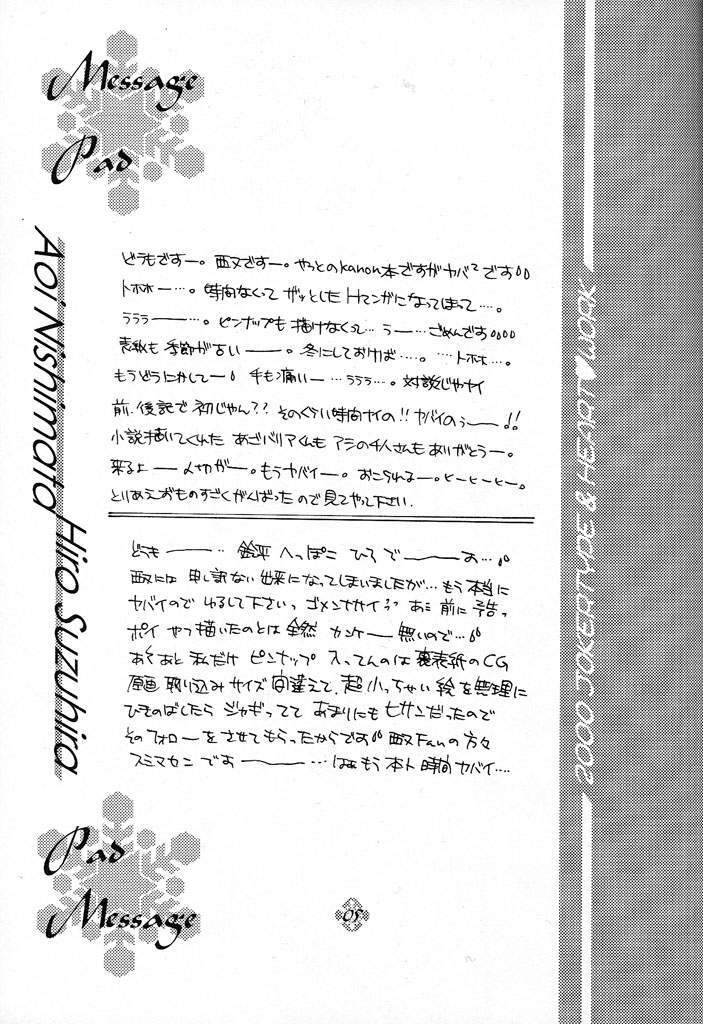 Message
Pad
Aoi Nishimata
どうもですー。西又ですー。やっとのkanon本ですがヤバ²です
トホホー…。時間なくって ザッとした Hマンガになってしまって…。
ラララ———…。ピンナップも 描けなくって… うー…ごめんです
表紙も 季節が古い———。冬にしておけば……。……トホホ…。
もうどうにかしてー 手も痛いー…ラララ…。対談じゃナイ
前、後記で 初じゃん?? そのくらい時間ナイの!! ヤバイのぅー!!
小説描いてくれた あざバリアくんも アシの千人さんも ありがとうー。
来るよ ー 〆切がー。もうヤバイー。おこられるー。ヒーヒーヒー。
とりあえずものすごくがんばった ので 見てやって下さい.
Hiro Suzuhira
どうも———‥ 鈴平 へっぽこ ひろ で———す…
西又には 申し訳ない 出来になってしまいましたが… もう本当に
ヤバイので ゆるして下さいっ ゴメンナサイ あぅ 前に 予告っ
ポイ やつ描いたのとは 全然 カンケー 無いので…
あぅあと 私だけ ピンナップ 入ってんのは 裏表紙の CG
原画 取り込み サイズ 間違えて、超 小っちゃい 絵 を 無理に
ひきのばしたら ジャギってて あまりにも ヒサンだったので
そのフォロー をさせてもらったからです 西又Fanの 方々
スミマセン です———…はぁ もう 本ト 時間 ヤバイ‥‥
Pad
Message
05
2000 JOKERTYPE & HEART♥WORK